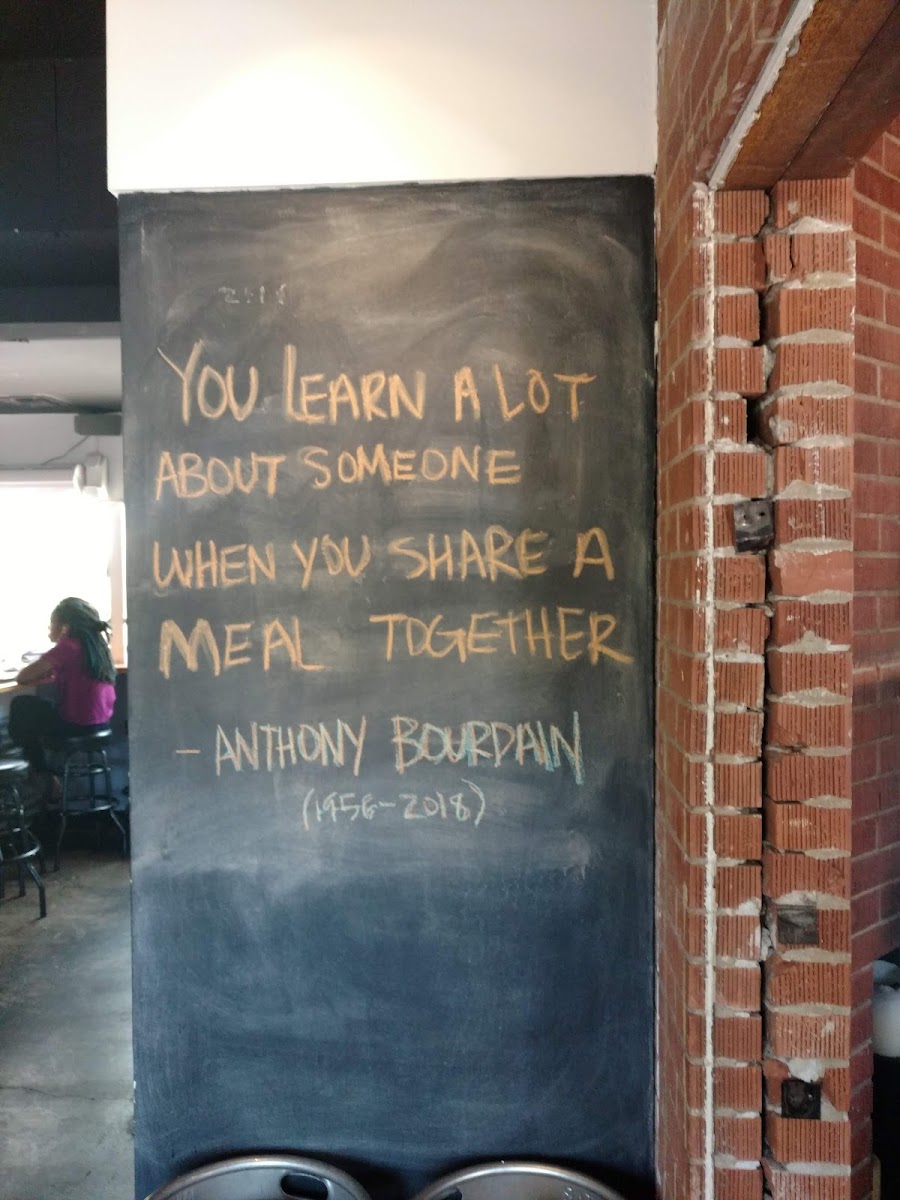 YOU LEARN A LOT
ABOUT SOMEONE
WHEN YOU SHARE A
MEAL TOGETHER
- ANTHONY BOURDAIN
(1956-2018)